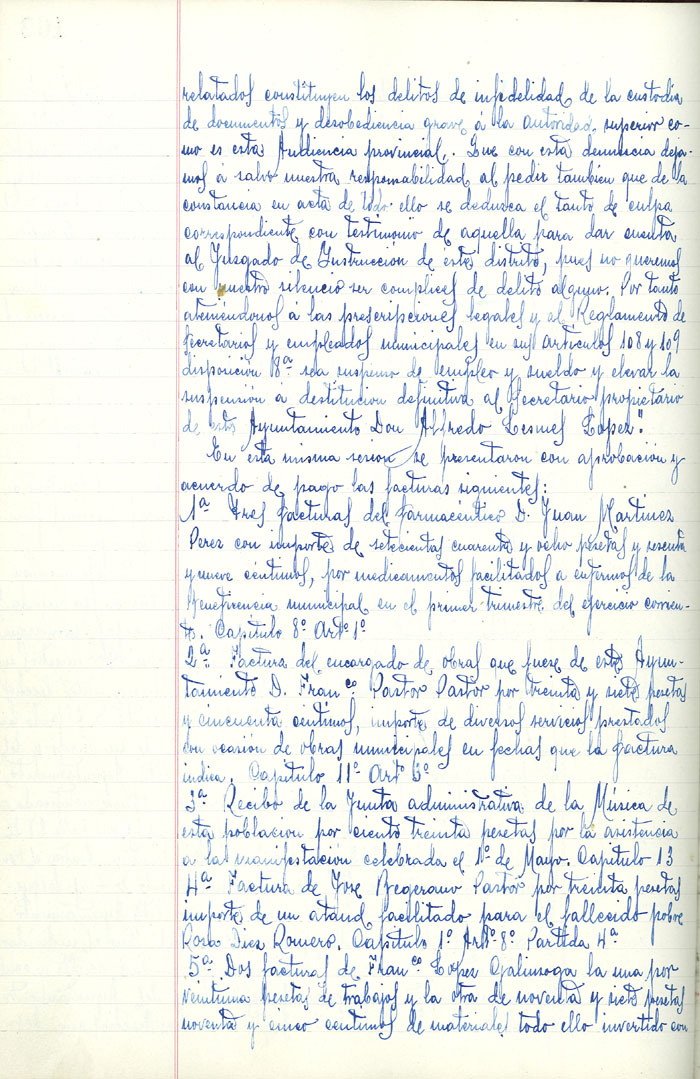 relatados constituyen los delitos de infidelidad de la custodia
de documentos y desobediencia grave á la autoridad superior co-
mo es esta Audiencia provincial. Que con esta denuncia deja-
mos á salvo nuestra responsabilidad al pedir tambien que de la
constancia en acta de todo ello se deduzca el tanto de culpa
correspondiente con testimonio de aquella para dar cuenta
al Juzgado de Instruccion de este distrito, pues no queremos
con nuestro silencio ser complices de delito alguno. Por tanto
ateniendonos á las prescripciones legales y al Reglamento de
Secretarios y empleados municipales en sus articulos 108 y 109
disposicion 8ª sea suspenso de empleo y sueldo y elevar la
suspensión á destitucion definitiva al Secretario propietario
de este Ayuntamiento Don Alfredo Lesmes Lopez".
En esta misma sesion se presentaron con aprobacion y
acuerdo de pago las facturas siguientes:
1ª Tres facturas del farmacéutico D. Juan Martinez
Perez con importe de setecientas cuarenta y ocho pesetas y sesenta
y nueve céntimos, por medicamentos facilitados a enfermos de la
Beneficencia municipal en el primer trimestre del ejercicio corrien-
te. Capitulo 8º Artº 1º
2ª Factura del encargado de obras que fuese de este Ayun-
tamiento D. Franco Pastor Pastor por treinta y siete pesetas
y cincuenta centimos, importe de diversos servicios prestados
con ocasión de obras municipales en fechas que la factura
indica. Capitulo 11º Artº 6º
3ª Recibo de la Junta administrativa de la Música de
esta poblacion por ciento treinta pesetas por la asistencia
a la manifestacion celebrada el 1º de Mayo. Capitulo 13
4ª Factura de Jose Begerano Pastor por treinta pesetas
importe de un ataud facilitado para el fallecido pobre
Rosa Diez Romero. Capitulo 1º Artº 8º Partida 4ª
5ª Dos facturas de Franco Lopez Galinsoga la una por
veintiuna pesetas de trabajos y la otra de noventa y siete pesetas
noventa y cinco centimos de materiales todo ello invertido con